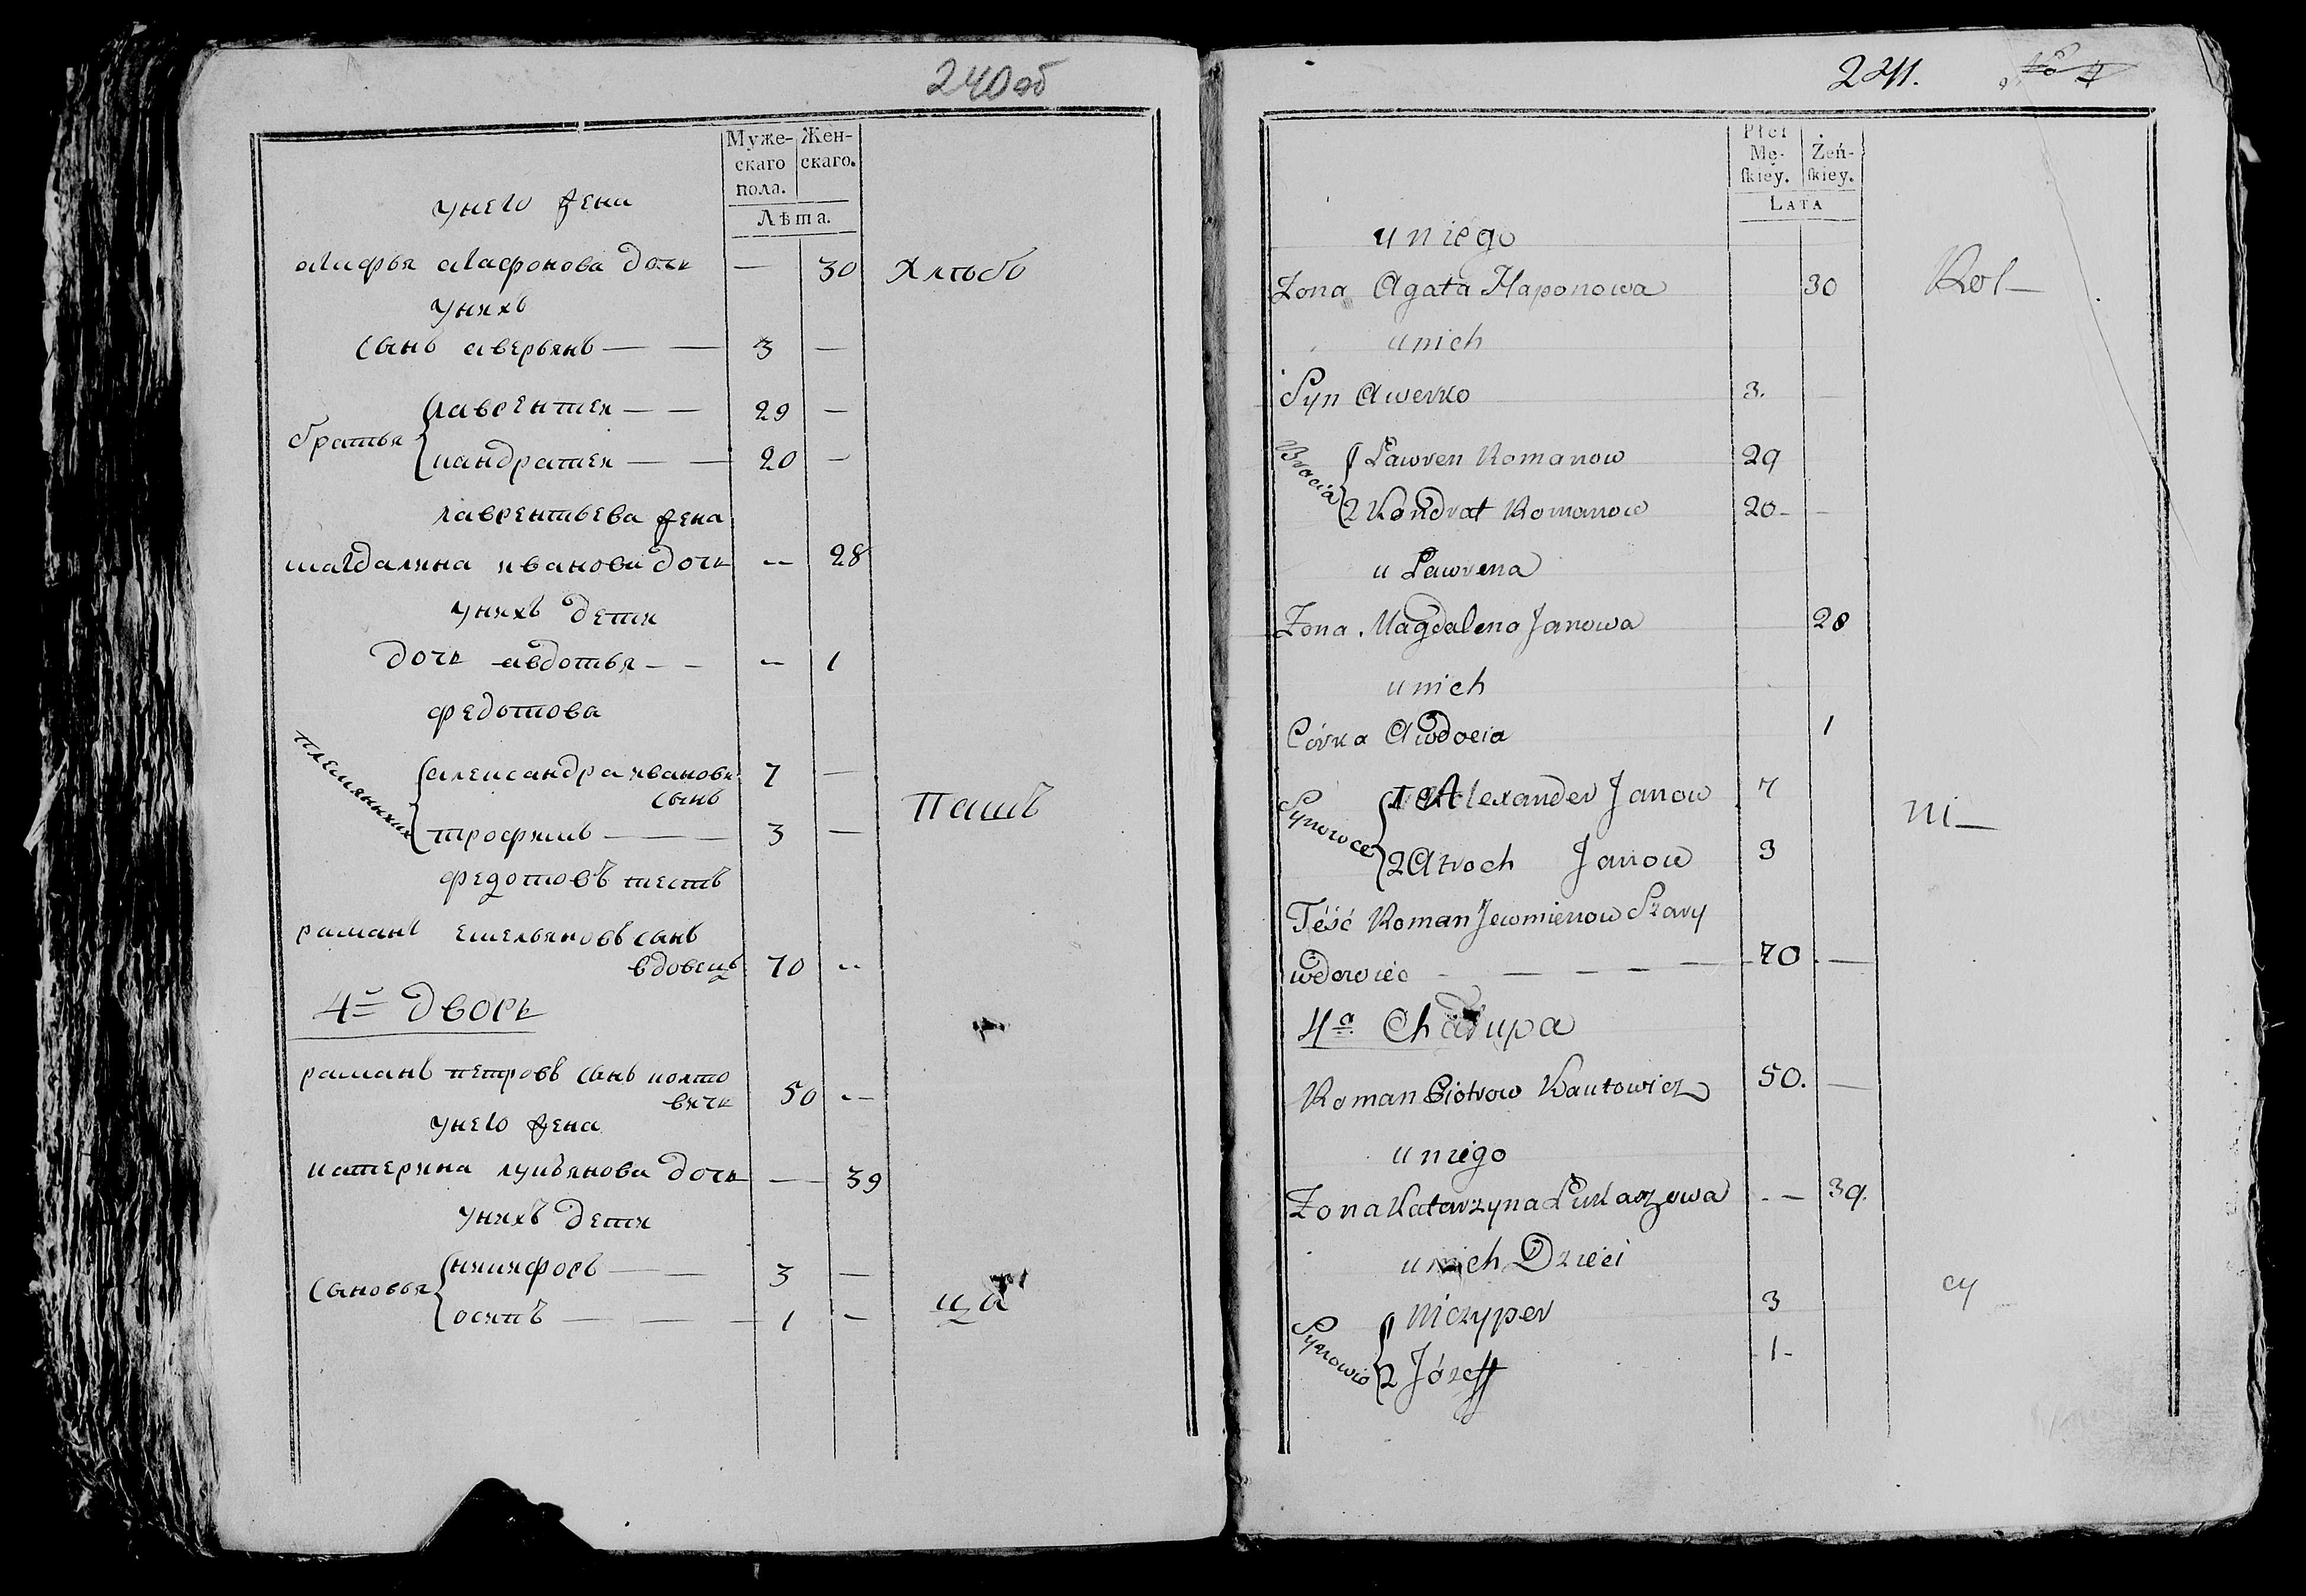 240 об
Муже-
скаго
пола.
Жен-
скаго.
Лѣта.
у него жена
агафья агафонова дочь — 30
Хлѣбо
у нихъ
сынъ аверьянъ — — 3 —
братья
лаврентей — — 29 —
кандратей — — 20 —
лаврентьева жена
магдалина иванова дочь -- 28
у нихъ дети
дочь авдотья — — -- 1
федотова
племянники
александра ивановъ 7 —
сынъ
трофимъ — — 3 —
Пашъ
федотовъ тесть
раманъ емельяновъ сынъ
вдовецъ 70 --
4й дворъ
раманъ петровъ сынъ колто
вичь 50 --
у него жена
катерина лукьянова дочь — 39
у нихъ дети
сыновья
никифоръ — — 3 —
осипъ — — 1 —
ца
241.
Płci
Mę-
ſkiey.
Żeń-
ſkiey.
Lata
u niego
Żona Agata Haponowa 30
Rol—
u nich
Syn Awerko 3.
Bracia
1 Lawren Romanow 29
2 Kondrat Romanow 20 -
u Lawrena
Żona Magdalena Janowa 28
u nich
Córka Awdocia 1
Synowce
1 Alexander Janow 7
2 Atroch Janow 3
ni—
Teść Roman Jewmienow Szary
wdowiec - — — — — 70 —
4a Chałupa
Roman Piotrow Kautowicz 50. —
u niego
Żona Katarzyna Łukaszowa - — 39.
u nich Dzieci
Synowie
1 Niczyper 3
2 Józeff 1 -
cy